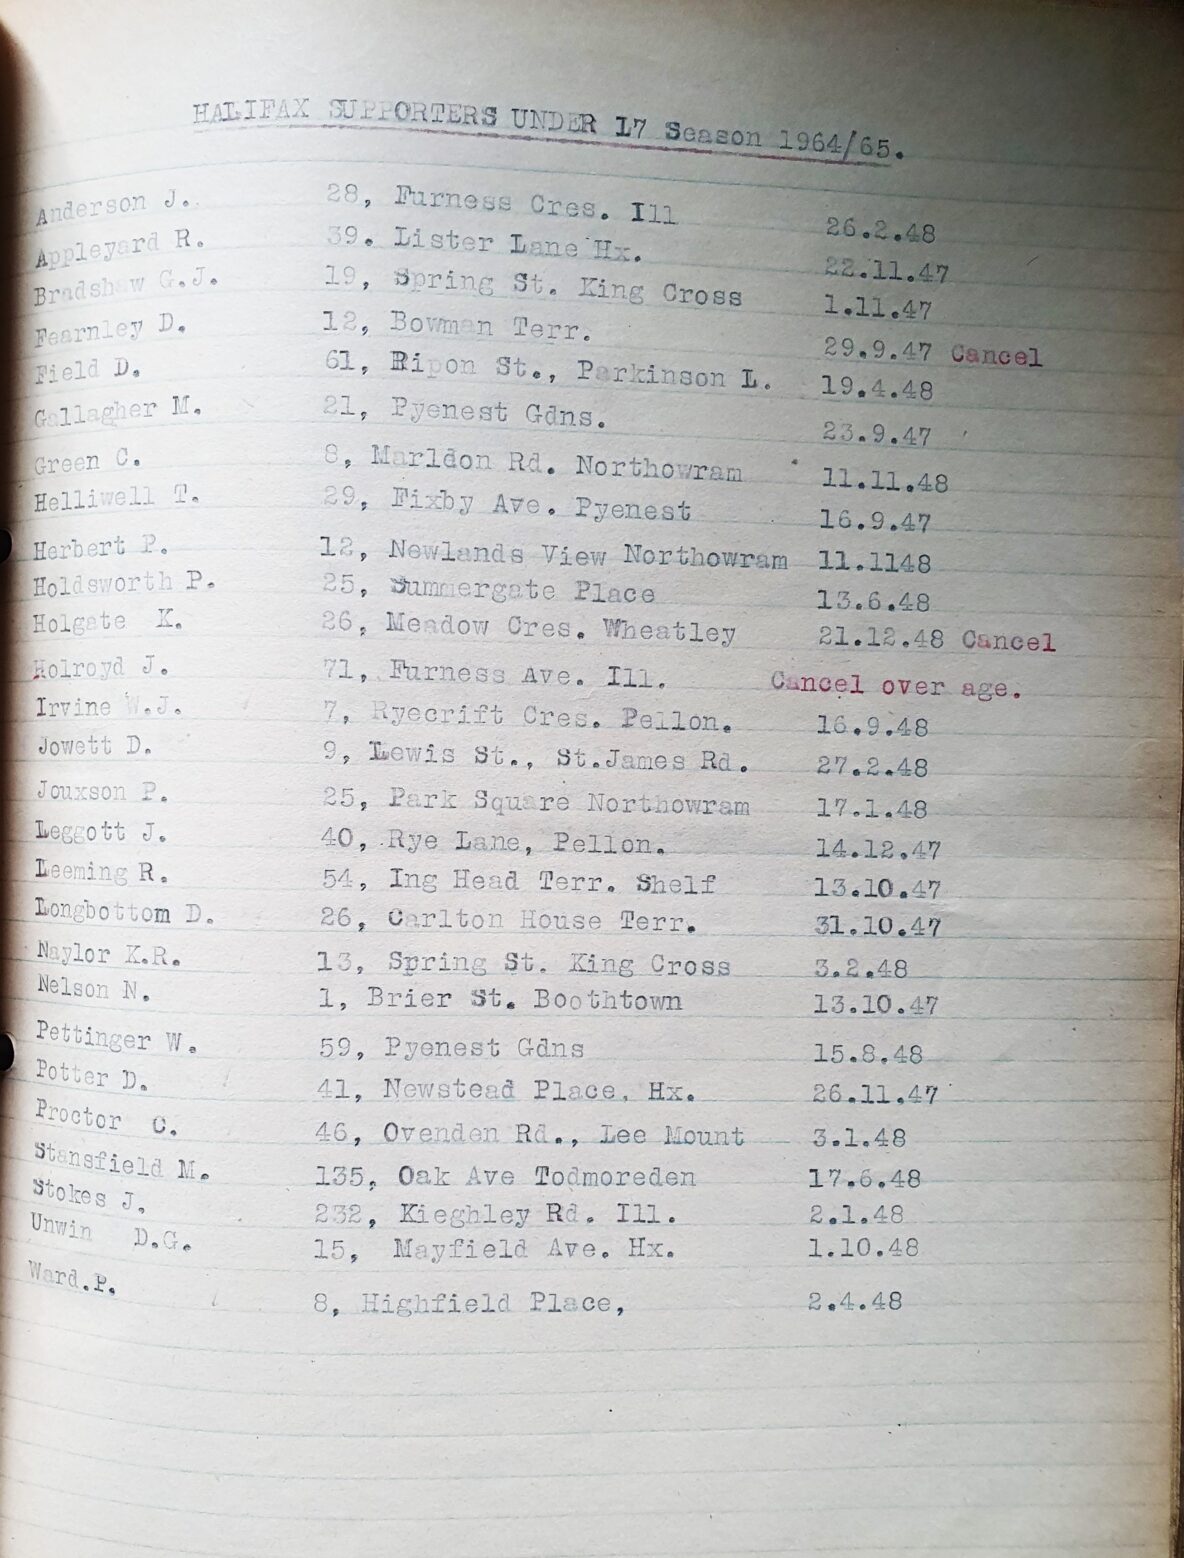 HALIFAX SUPPORTERS UNDER 17 Season 1964/65.
Anderson J. 28, Furness Cres. Ill 26.2.48
Appleyard R. 39. Lister Lane Hx. 22.11.47
Bradshaw G.J. 19, Spring St. King Cross 1.11.47
Fearnley D. 12, Bowman Terr. 29.9.47 Cancel
Field D. 61, Ripon St., Parkinson L. 19.4.48
Gallagher M. 21, Pyenest Gdns. 23.9.47
Green C. 8, Marldon Rd. Northowram 11.11.48
Helliwell T. 29, Fixby Ave. Pyenest 16.9.47
Herbert P. 12, Newlands View Northowram 11.1148
Holdsworth P. 25, Summergate Place 13.6.48
Holgate K. 26, Meadow Cres. Wheatley 21.12.48 Cancel
Holroyd J. 71, Furness Ave. Ill. Cancel over age.
Irvine W.J. 7, Ryecrift Cres. Pellon. 16.9.48
Jowett D. 9, Lewis St., St.James Rd. 27.2.48
Jouxson P. 25, Park Square Northowram 17.1.48
Leggott J. 40, Rye Lane, Pellon. 14.12.47
Leeming R. 54, Ing Head Terr. Shelf 13.10.47
Longbottom D. 26, Carlton House Terr. 31.10.47
Naylor K.R. 13, Spring St. King Cross 3.2.48
Nelson N. 1, Brier St. Boothtown 13.10.47
Pettinger W. 59, Pyenest Gdns 15.8.48
Potter D. 41, Newstead Place, Hx. 26.11.47
Proctor C. 46, Ovenden Rd., Lee Mount 3.1.48
Stansfield M. 135, Oak Ave Todmoreden 17.6.48
Stokes J. 232, Kieghley Rd. Ill. 2.1.48
Unwin D.G. 15, Mayfield Ave. Hx. 1.10.48
Ward.P. 8, Highfield Place, 2.4.48